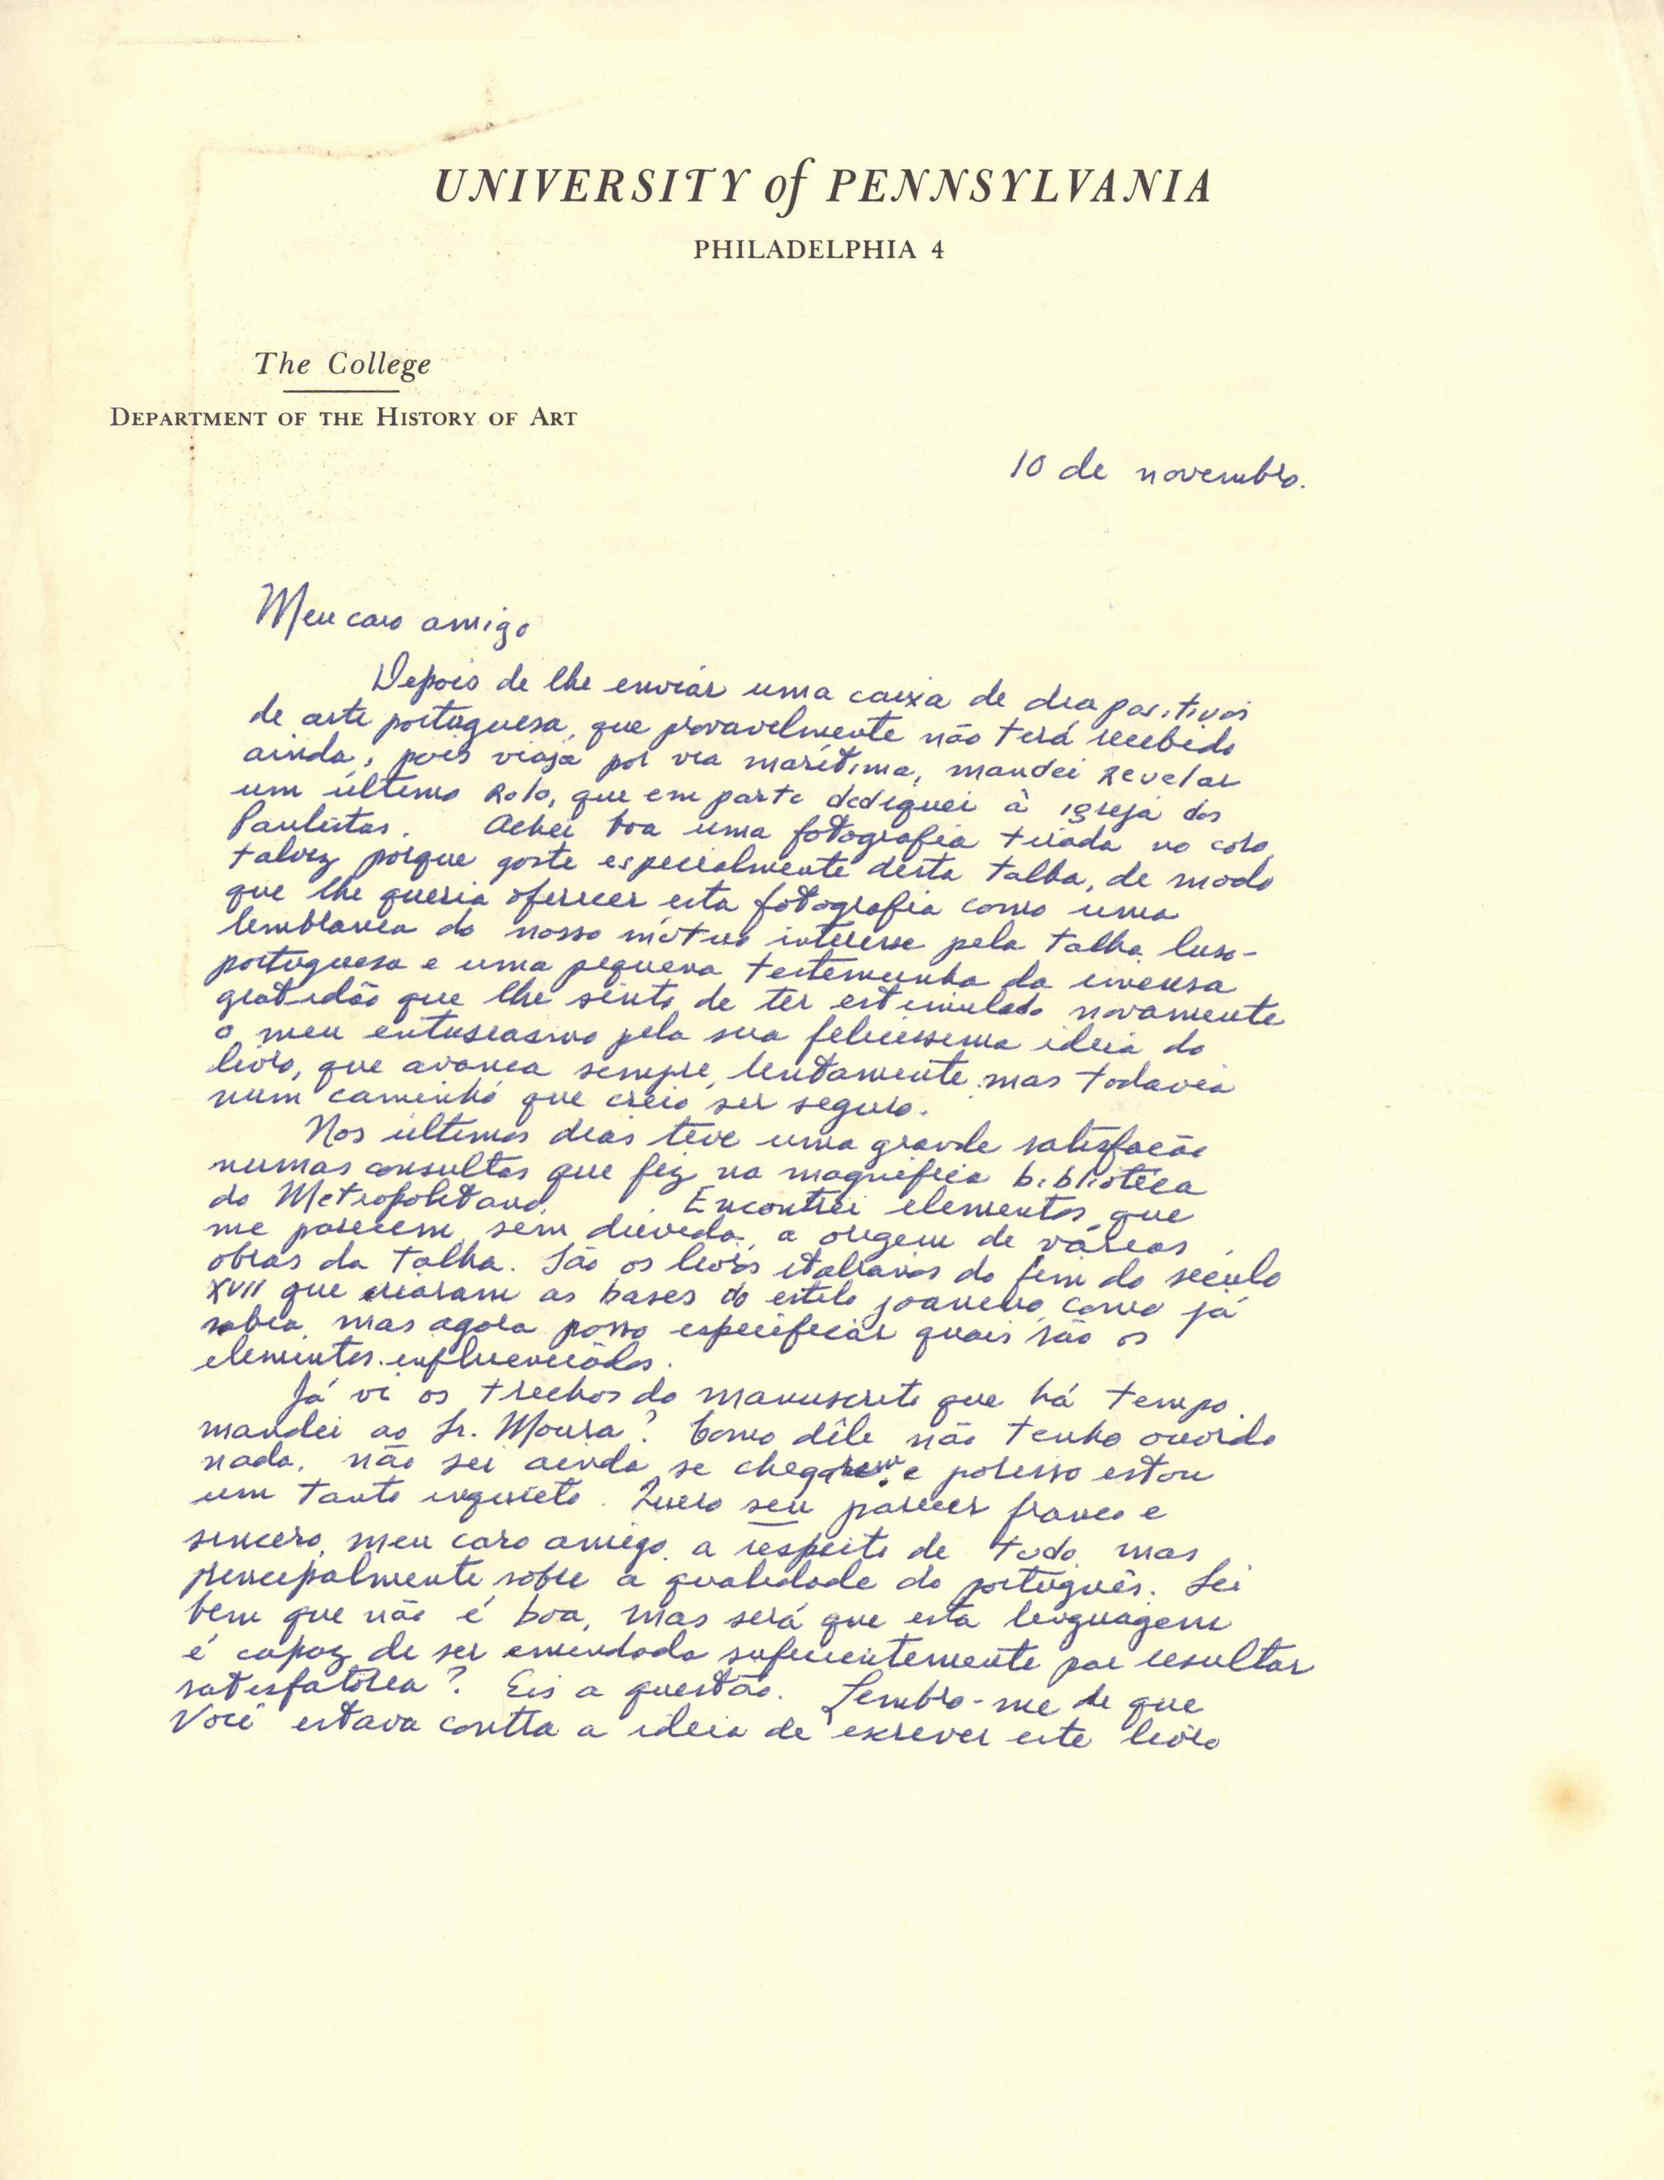 UNIVERSITY of PENNSYLVANIA
PHILADELPHIA 4
The College
DEPARTMENT OF THE HISTORY OF ART
10 de novembro.
Meu caro amigo
Depois de lhe enviar uma caixa de diapositivos
de arte portuguesa, que provavelmente não terá recebido
ainda, pois viaja por via marítima, mandei revelar
um último rolo, que em parte dediquei à igreja dos
Paulistas. Achei boa uma fotografia tirada no coro,
talvez porque goste especialmente desta talha, de modo
que lhe queria oferecer esta fotografia como uma
lembranca do nosso mútuo interesse pela talha luso-
portuguesa e uma pequena testemunha da imensa
gratidão que lhe sinto de ter estimulado novamente
o meu entusiasmo pela sua felicissima ideia do
livro, que avanca sempre, lentamente mas todavia
num caminho que creio ser seguro.
Nos últimos dias tive uma grande satisfação
numas consultas que fiz na magnifica biblioteca
do Metropolitano. Encontrei elementos que
me parecem, sem duvida, a origem de várias
obras da talha. São os livros italianos do fim do século
XVII que criaram as bases do estilo joanino, como já
sabia, mas agora posso especificar quais são os
elementos influenciados.
Já vi os trechos do manuscrito que há tempo
mandei ao Sr. Moura? Como dêle não tenho ouvido
nada, não sei ainda se chegaram e porisso estou
um tanto inquieto. Quero seu parecer franco e
sincero, meu caro amigo, a respeito de tudo, mas
principalmente sobre a qualidade do português. Sei
bem que não é boa, mas será que esta linguagem
é capaz de ser emendada suficientemente par resultar
satisfatória? Eis a questão. Lembro-me de que
Você estava contra a ideia de escrever este livro